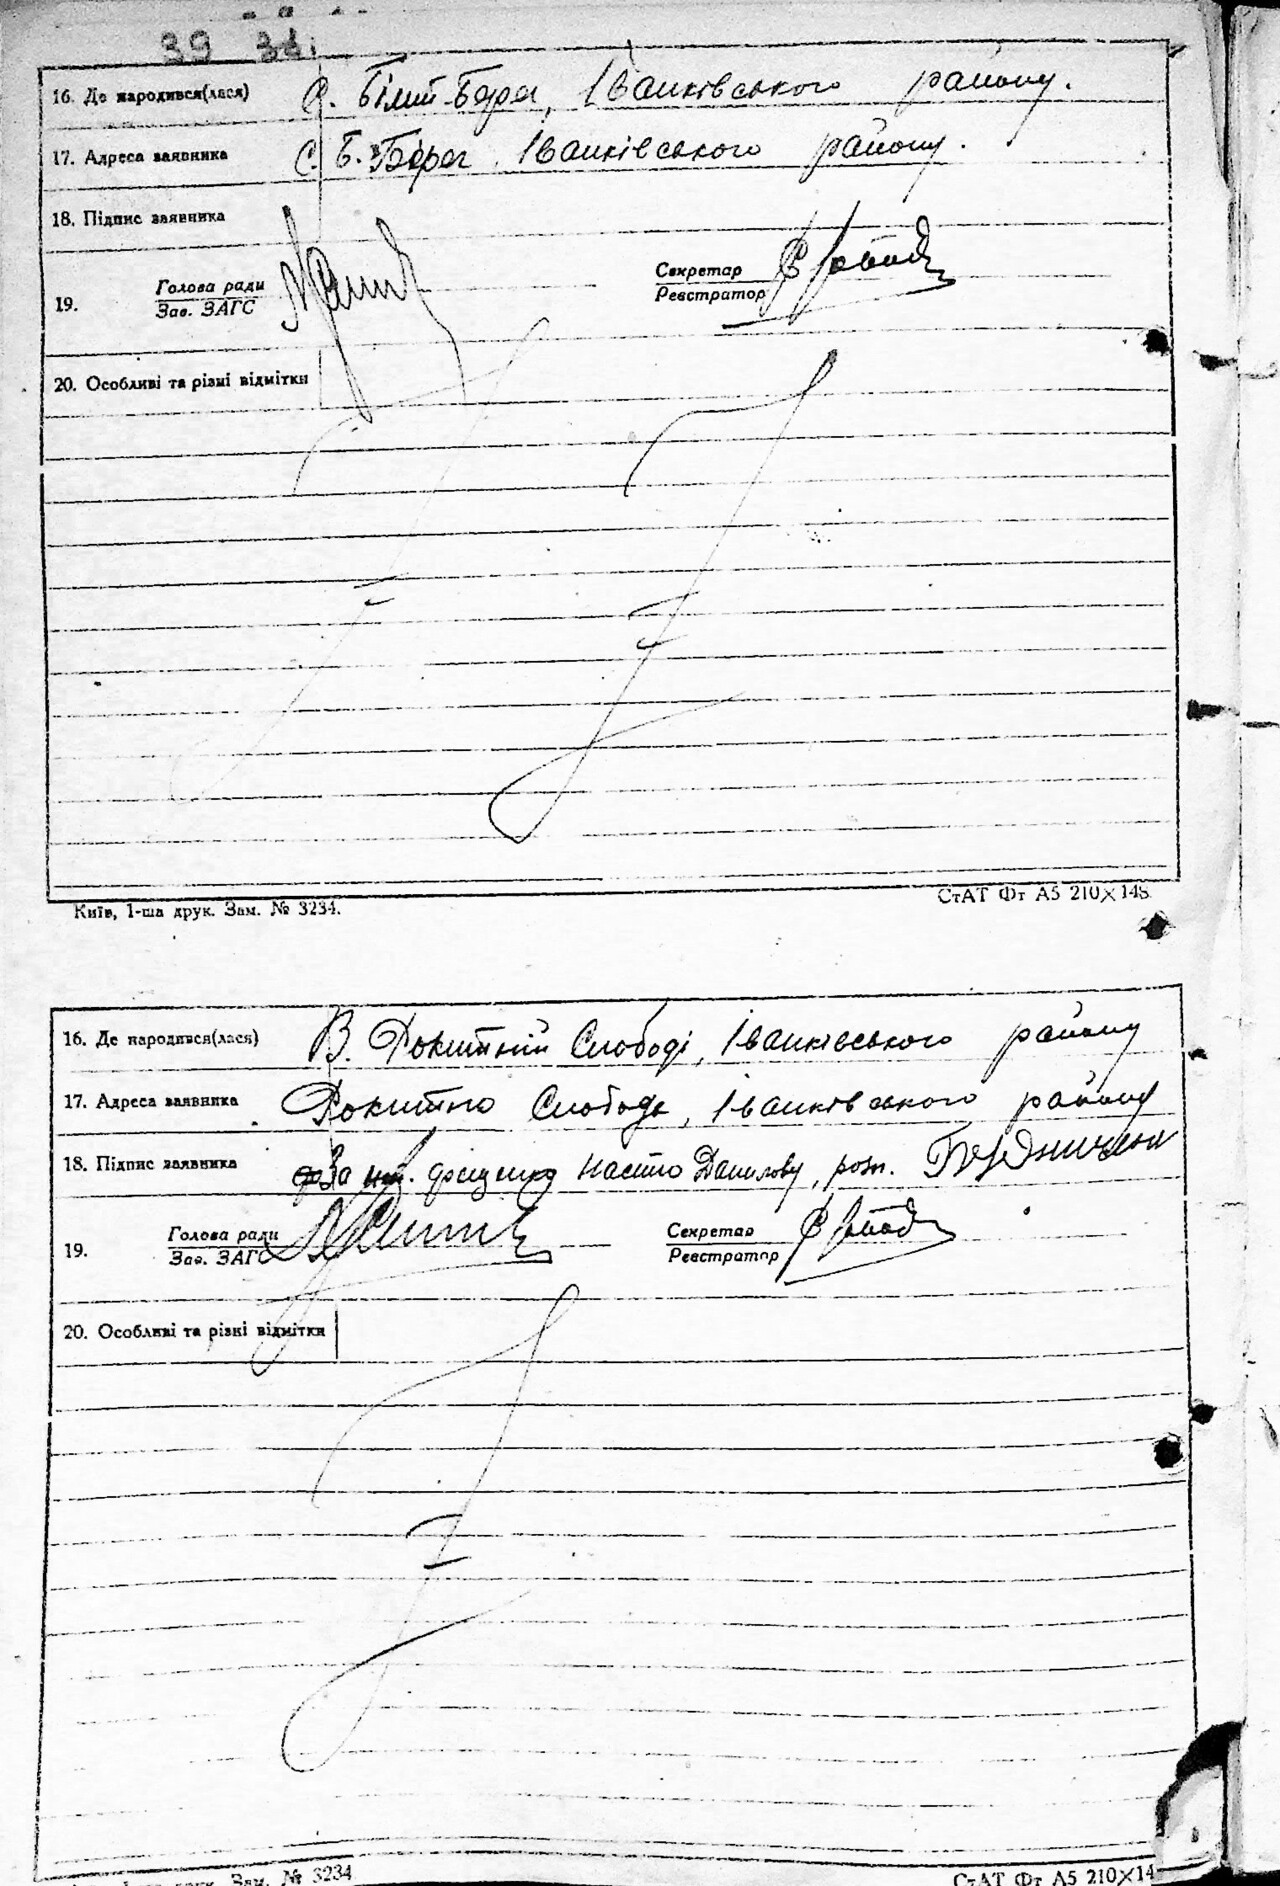 39 34
16. Де народився(лася) С. Білий-Берег, Іванківського району.
17. Адреса заявника С. Б. Берег. Іванківського району.
18. Підпис заявника
Голова ради Секретар
19. Зав. ЗАГС Реєстратор
20. Особливі та різні відмітки
Київ, 1-ша друк. Зам. № 3234. СтАТ Фт А5 210×148
16. Де народився(лася) В. Рокитній Слободі, Іванківського району
17. Адреса заявника Рокитно Слобода, Іванківського району
18. Підпис заявника За Настю Данилову, розп.
Голова ради Секретар
19. Зав. ЗАГС Реєстратор
20. Особливі та різні відмітки
друк. Зам. № 3234 СтАТ Фт А5 210×14